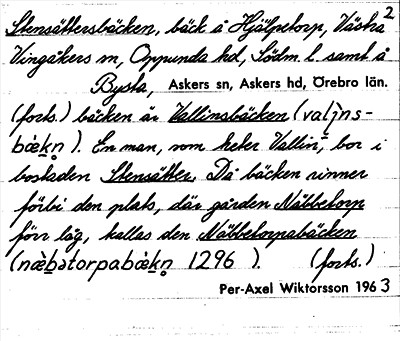 2
Stensättersbäcken, bäck å Hjälpetorp, Västra
Vingåkers sn, Oppunda hd, Södm. l. samt å
Bysta, Askers sn, Askers hd, Örebro län.
(forts.) bäcken är Vallinsbäcken (valịns-
bæ̀kn̥). En man, som heter Vallin, bor i
bostaden Stensätter. Då bäcken rinner
förbi den plats, där gården Näbbetorp
förr låg, kallas den Näbbetorpabäcken
(næ̀bətorpabæ̀kn̥ 1296). (forts.)
Per-Axel Wiktorsson 1963